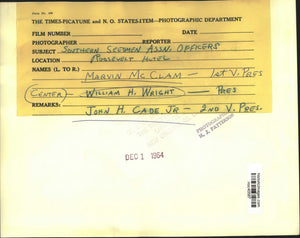 THE TIMES-PICAYUNE and N. O. STATES-ITEM—PHOTOGRAPHIC DEPARTMENT
FILM NUMBER DATE
PHOTOGRAPHER REPORTER
SUBJECT SOUTHERN SEEDMEN ASSN. OFFICERS
LOCATION ROOSEVELT HOTEL
NAMES (L. TO R.)
MARVIN MC CLAM — 1ST V. PRES
(CENTER) — WILLIAM H. WRIGHT — PRES
REMARKS:
JOHN H. CADE JR — 2ND V. PRES.
H. J. PATTERSON
DEC 1 1964